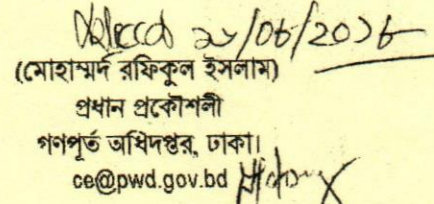 (মোহাম্মদ রফিকুল ইসলাম)
প্রধান প্রকৌশলী
গণপূর্ত অধিদপ্তর, ঢাকা।
ce@pwd.gov.bd